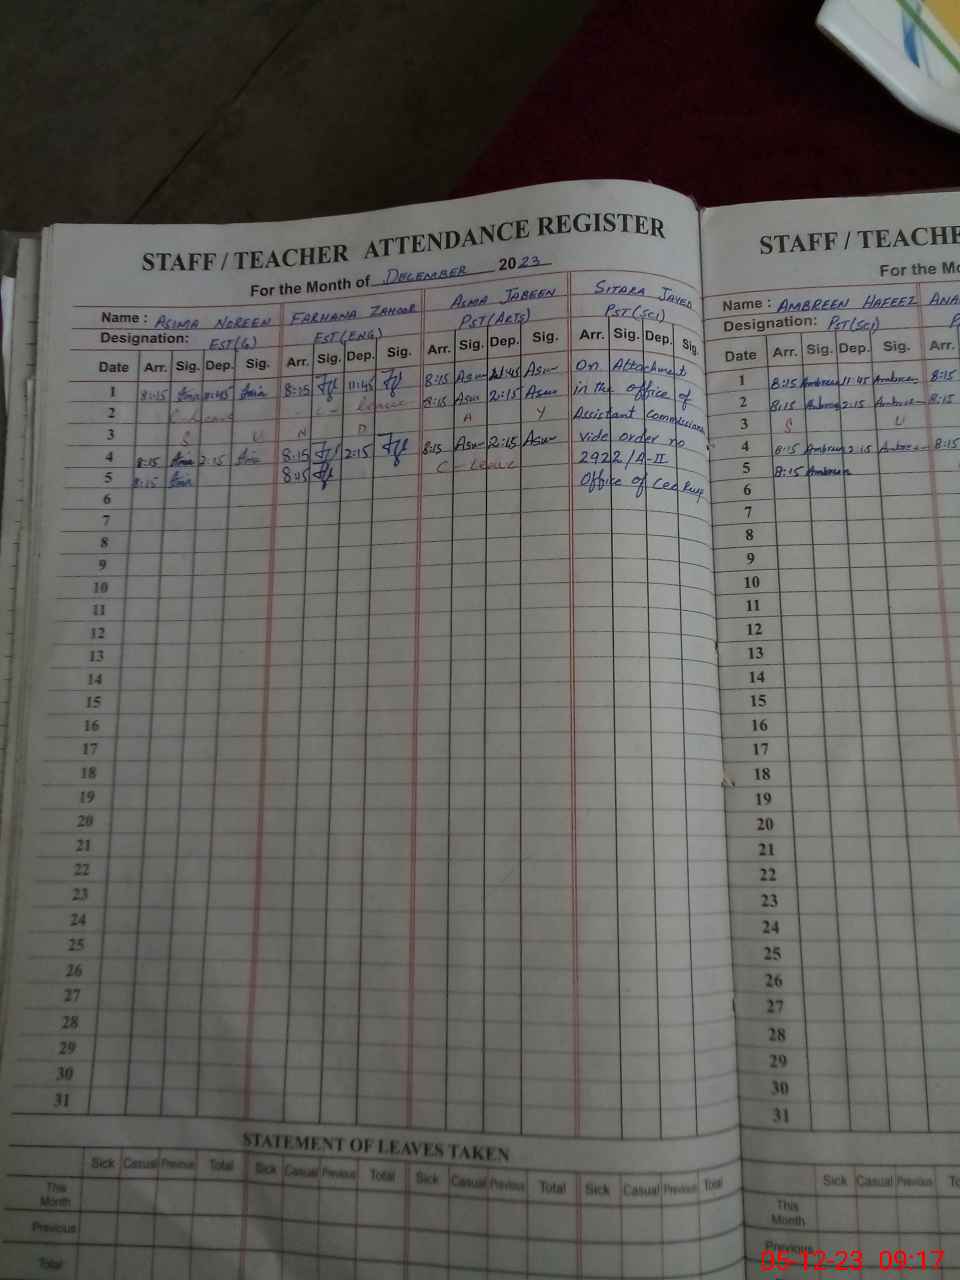 STAFF / TEACHER ATTENDANCE REGISTER
For the Month of December 2023
Name : Asima Noreen Farhana Zahoor Asma Jabeen Sitara Javed
Designation: EST(G) EST(ENG) PST(Arts) PST(Sci)
Date Arr. Sig. Dep. Sig. Arr. Sig. Dep. Sig. Arr. Sig. Dep. Sig. Arr. Sig. Dep. Sig.
1 8:15 11:45 8:15 11:45 8:15 Asm 11:45 Asm On Attachment
2 C-leave 8:15 Asm 2:15 Asm in the office of
3 S U N D A Y Assistant Commissioner
4 8:15 2:15 8:15 2:15 8:15 Asm 2:15 Asm vide order no
5 8:15 8:15 C-Leave 2922/A-II
6 Office of
7
8
9
10
11
12
13
14
15
16
17
18
19
20
21
22
23
24
25
26
27
28
29
30
31
STATEMENT OF LEAVES TAKEN
Sick Casual Previous Total Sick Casual Previous Total Sick Casual Previous Total Sick Casual Previous Total
This Month
Previous
Total
STAFF / TEACHE
For the Mo
Name : Ambreen Hafeez Ana
Designation: PST(Sci) P
Date Arr. Sig. Dep. Sig. Arr.
1 8:15 Ambreen 11:45 Ambreen 8:15
2 8:15 Ambreen 2:15 Ambreen 8:15
3 S U
4 8:15 Ambreen 2:15 Ambreen 8:15
5 8:15 Ambreen
6
7
8
9
10
11
12
13
14
15
16
17
18
19
20
21
22
23
24
25
26
27
28
29
30
31
Sick Casual Previous To
This Month
Previous
05-12-23 09:17